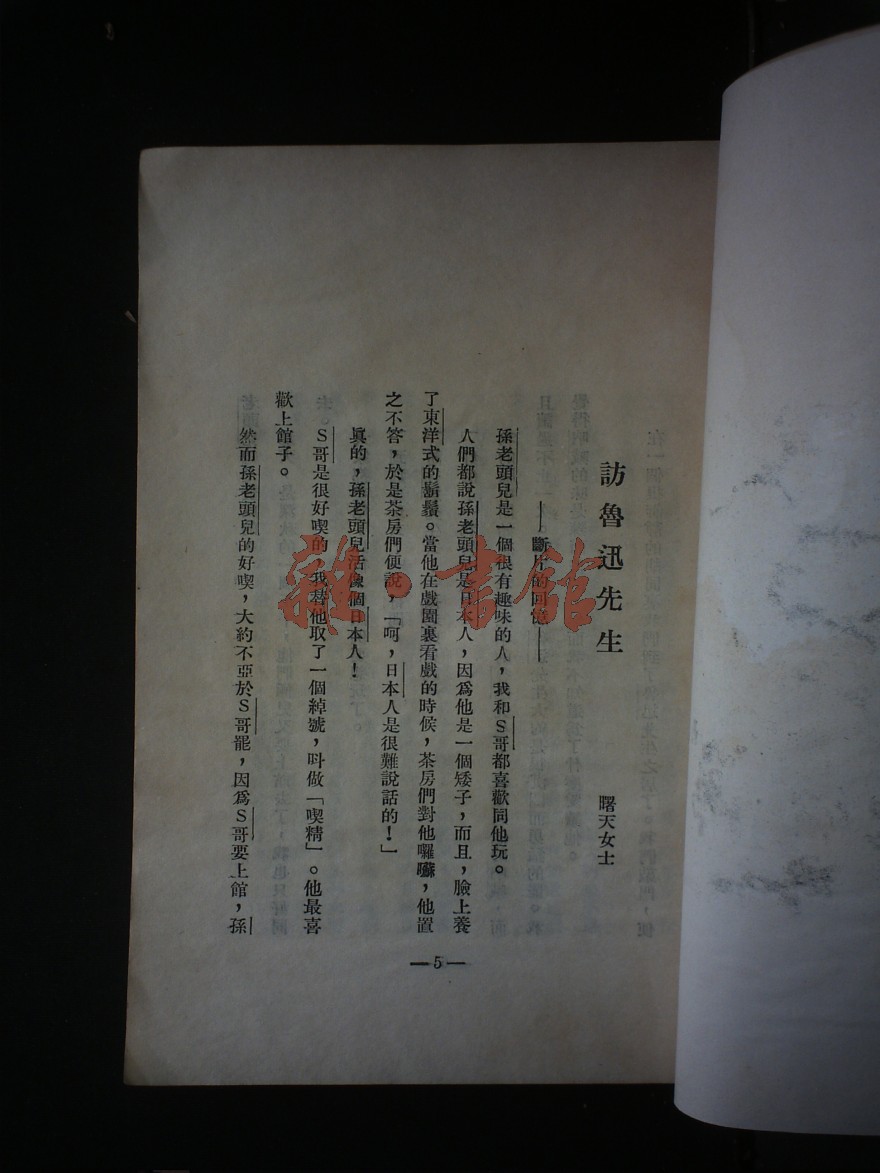 訪魯迅先生
曙天女士
——斷片的回憶——
孫老頭兒是一個很有趣味的人，我和Ｓ哥都喜歡同他玩。
人們都說孫老頭兒是日本人，因爲他是一個矮子，而且，臉上養
了東洋式的鬍鬚。當他在戲園裏看戲的時候，茶房們對他囉囌，他置
之不答，於是茶房們便說，「呵，日本人是很難說話的！」
眞的，孫老頭兒活像個日本人！
Ｓ哥是很好喫的，我替他取了一個綽號，呌做「喫精」。他最喜
歡上館子。
然而孫老頭兒的好喫，大約不亞於Ｓ哥罷，因爲Ｓ哥要上館，孫
—5—
雜·書館